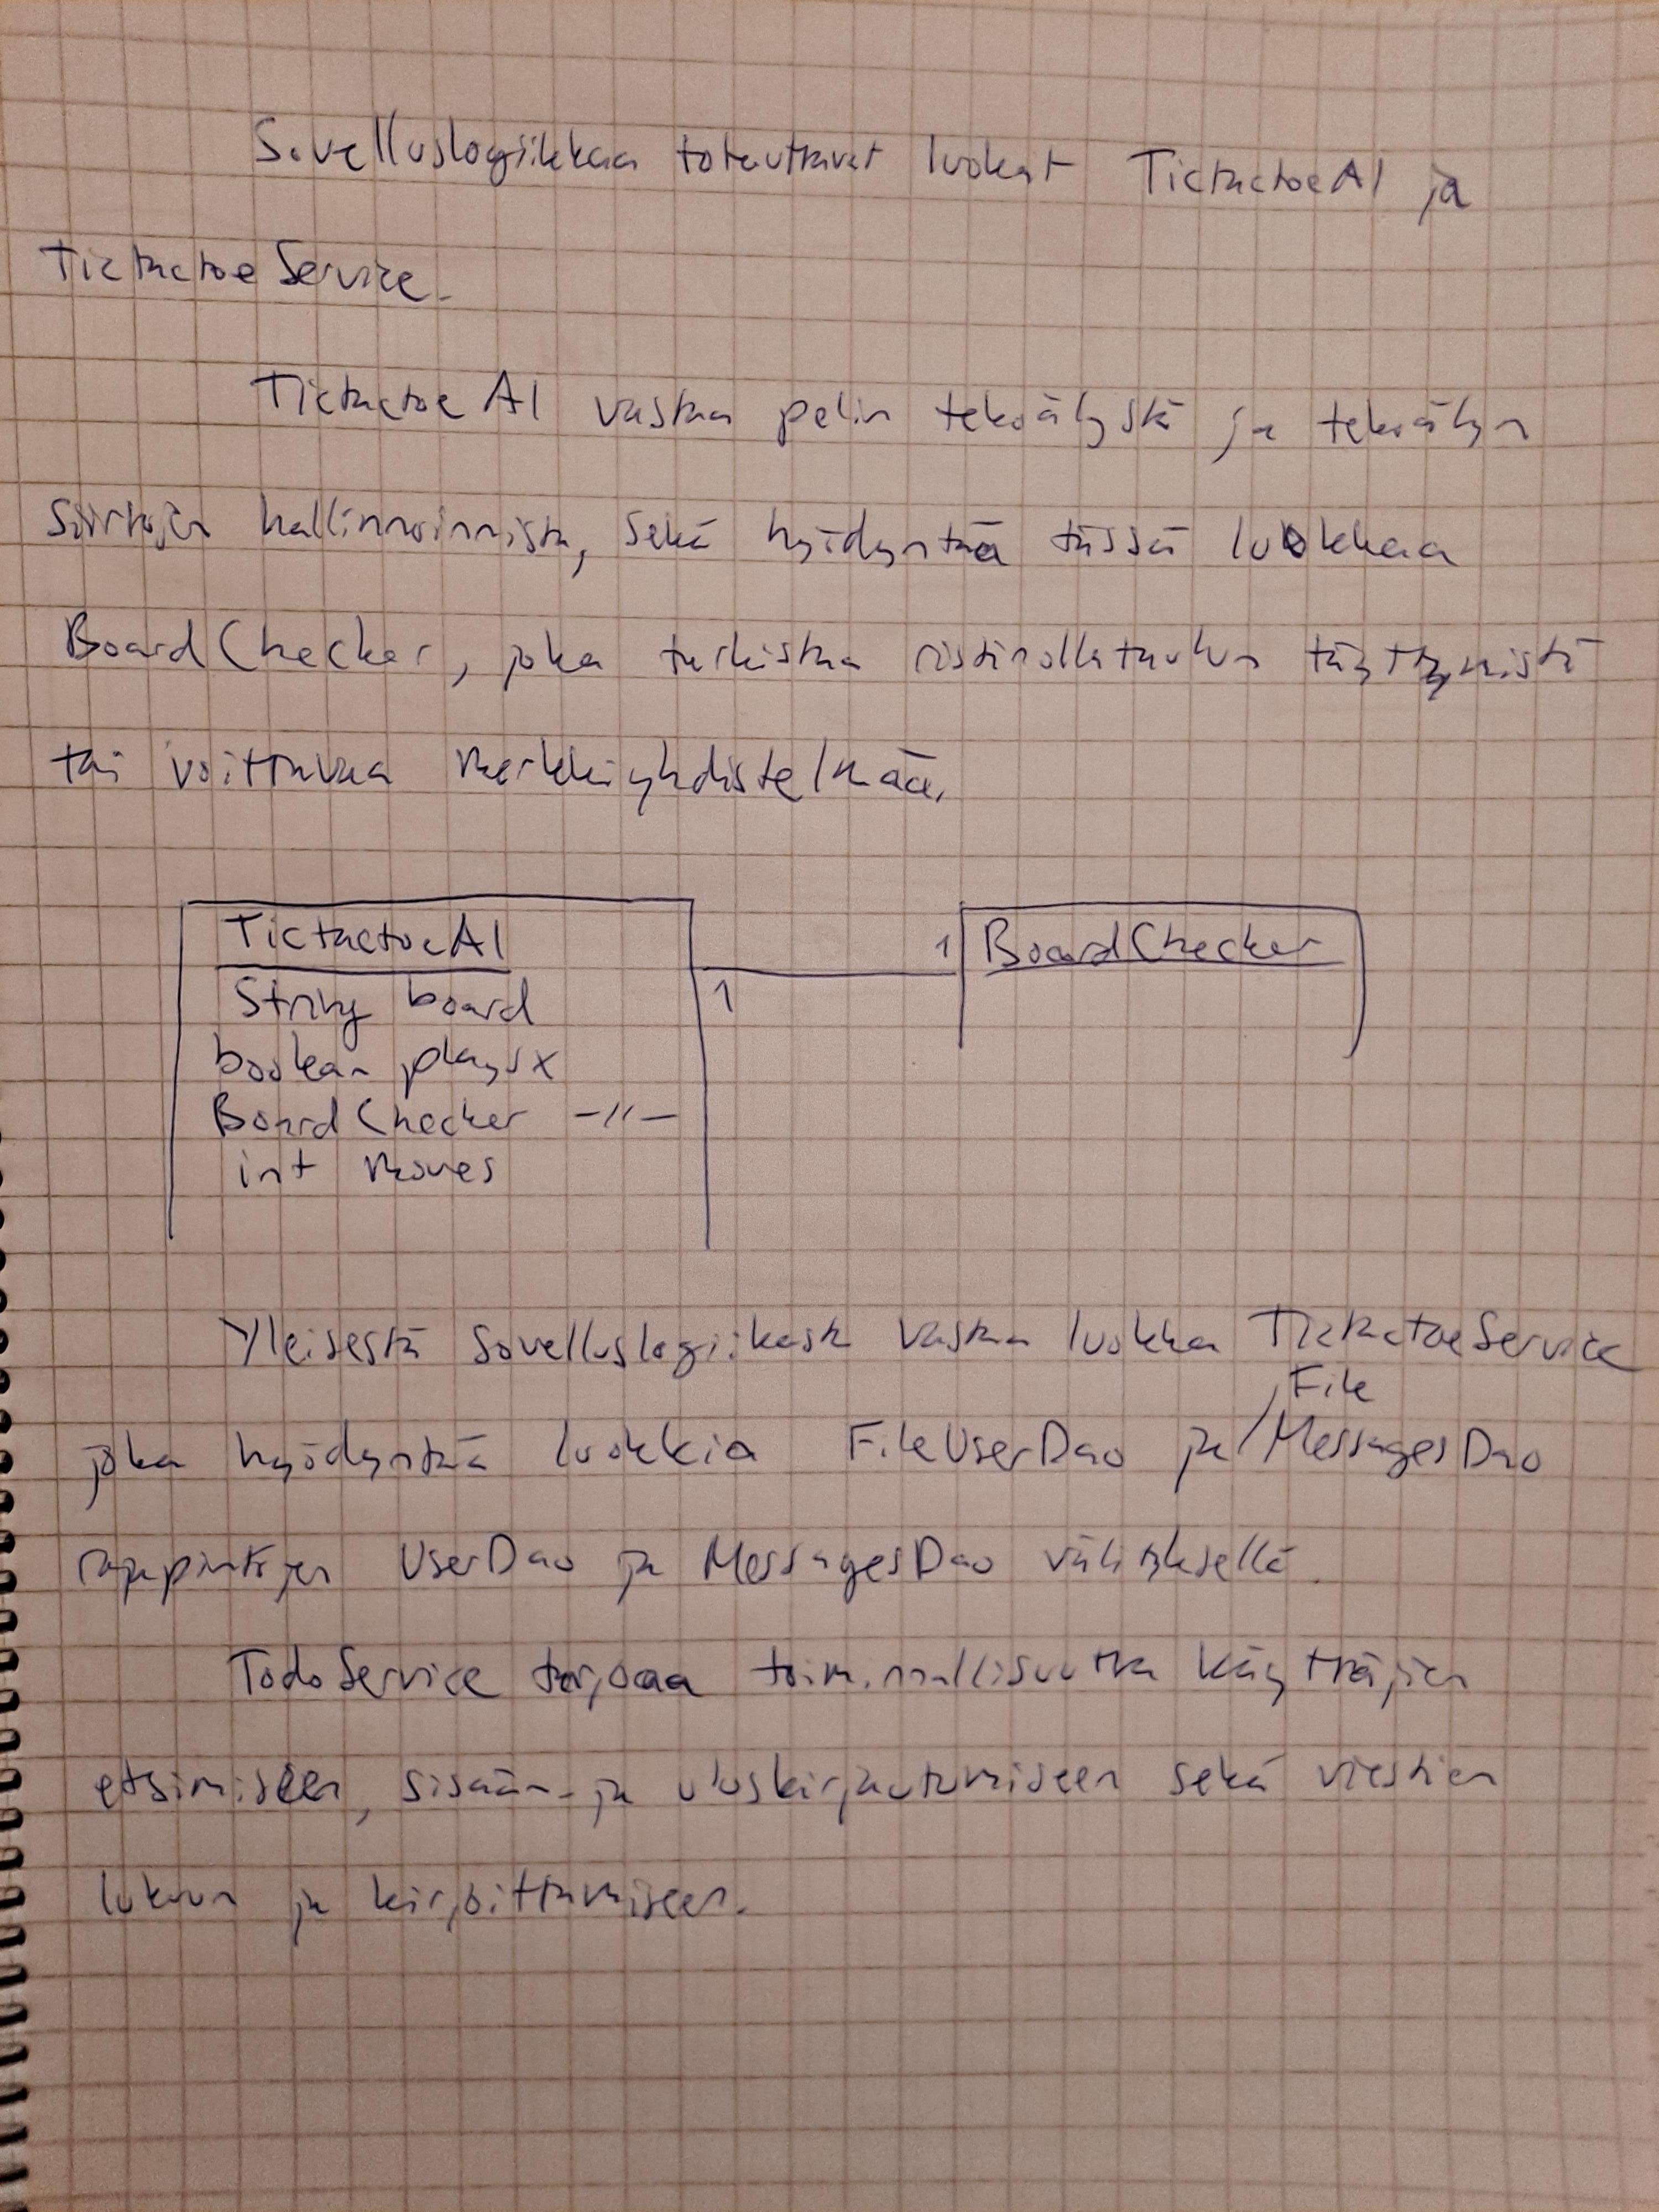 Sovelluslogiikkaa toteuttavat luokat TictactoeAI ja
TictactoeService.
TictactoeAI vastaa pelin tekoälystä ja tekoälyn
siirtojen hallinnoinnista, sekä hyödyntää tässä luokkaa
BoardChecker, joka tarkistaa ristinollataulun täyttymistä
tai voittavaa merkkiyhdistelmää.
TictactoeAI
String board
boolean playsx
BoardChecker -"-
int moves
1
1
BoardChecker
Yleisestä sovelluslogiikasta vastaa luokka TictactoeService
File
joka hyödyntää luokkia FileUserDao ja MessagesDao
rajapintojen UserDao ja MessagesDao välityksellä.
TodoService tarjoaa toiminnallisuutta käyttäjien
etsimiseen, sisään- ja uloskirjautumiseen sekä viestien
lukuun ja kirjoittamiseen.